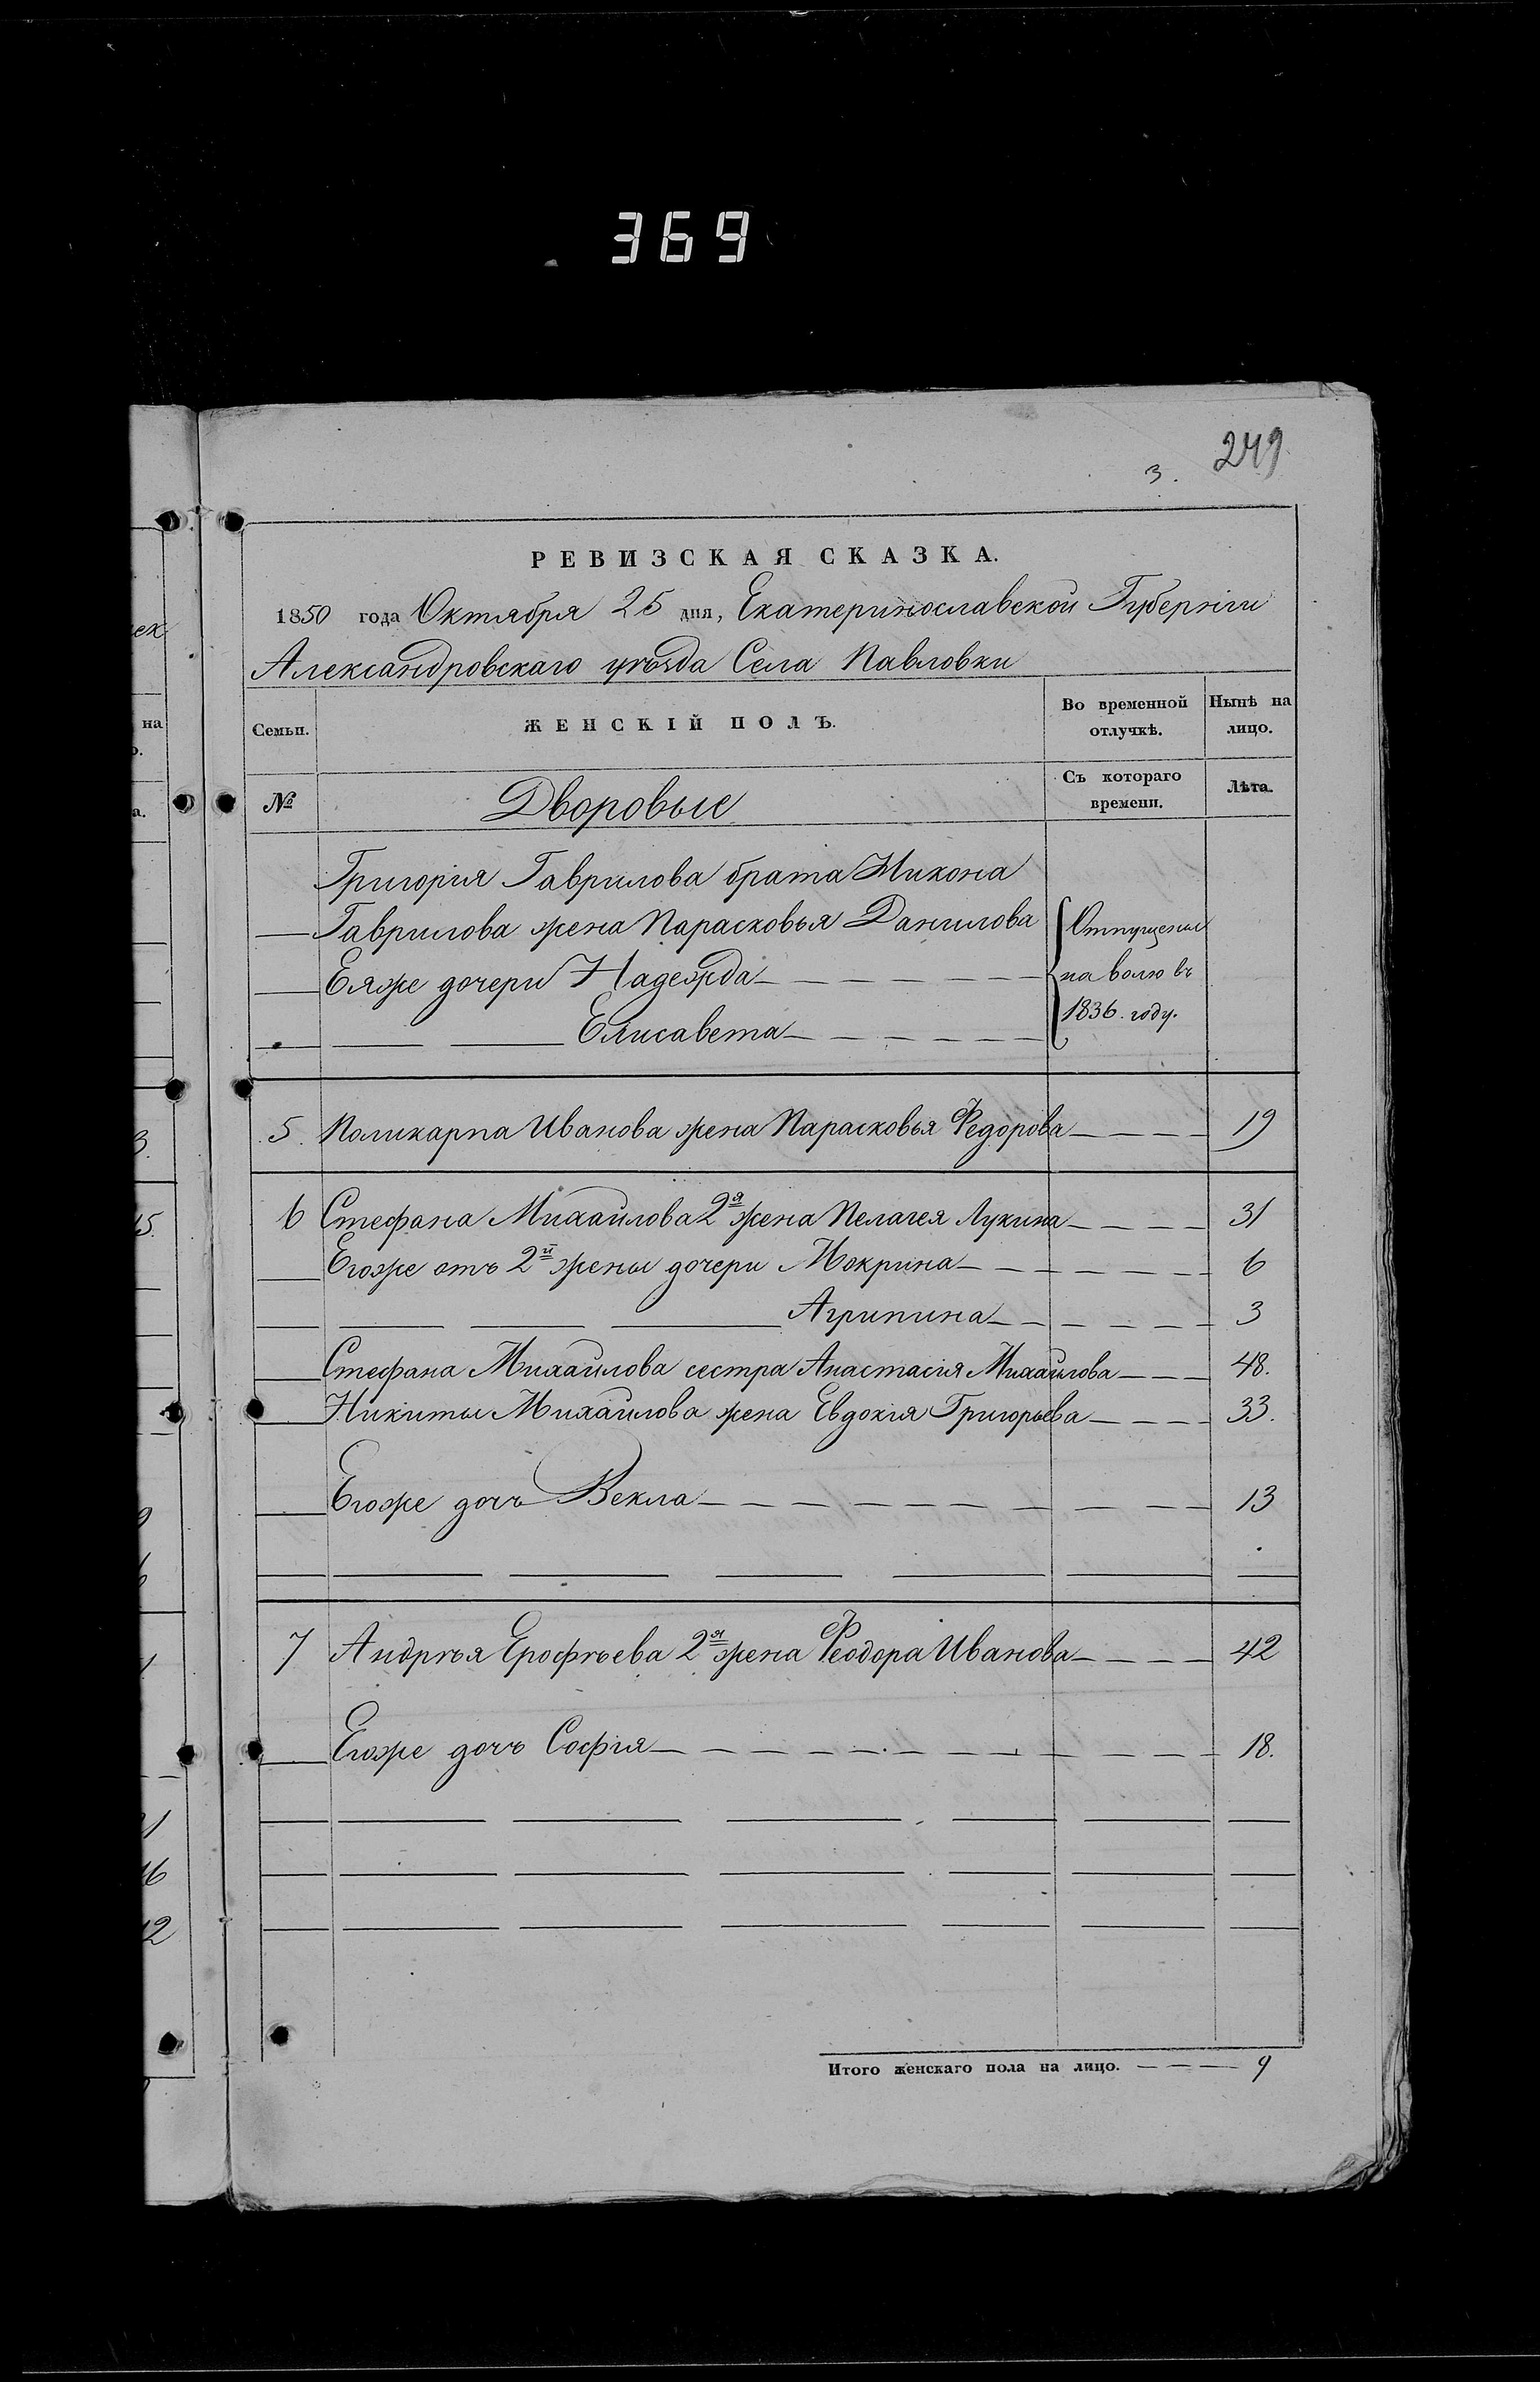 369
249
3.
РЕВИЗСКАЯ СКАЗКА.
1850 года Октября 25 дня, Екатеринославской Губерніи
Александровскаго уѣзда Села Павловки
Семьи. ЖЕНСКІЙ ПОЛЪ. Во временной отлучкѣ. Нынѣ на лицо.
№ Дворовые Съ котораго времени. Лѣта.
Григорія Гаврилова брата Никона
Гаврилова жена Парасковья Данилова Отпущены
Еяже дочери Надежда на волю въ
Елисавета 1836. году.
5. Поликарпа Иванова жена Парасковья Федорова 19
6 Стефана Михайлова 2я жена Пелагея Лукина 31
Егоже отъ 2й жены дочери Мокрина 6
Агрипина 3
Стефана Михайлова сестра Анастасія Михайлова 48.
Никиты Михайлова жена Евдокія Григорьева 33.
Егоже дочь Векла 13
7 Андрѣя Ерофѣева 2я жена Феодора Иванова 42
Егоже дочь Софія 18.
Итого женскаго пола на лицо. 9